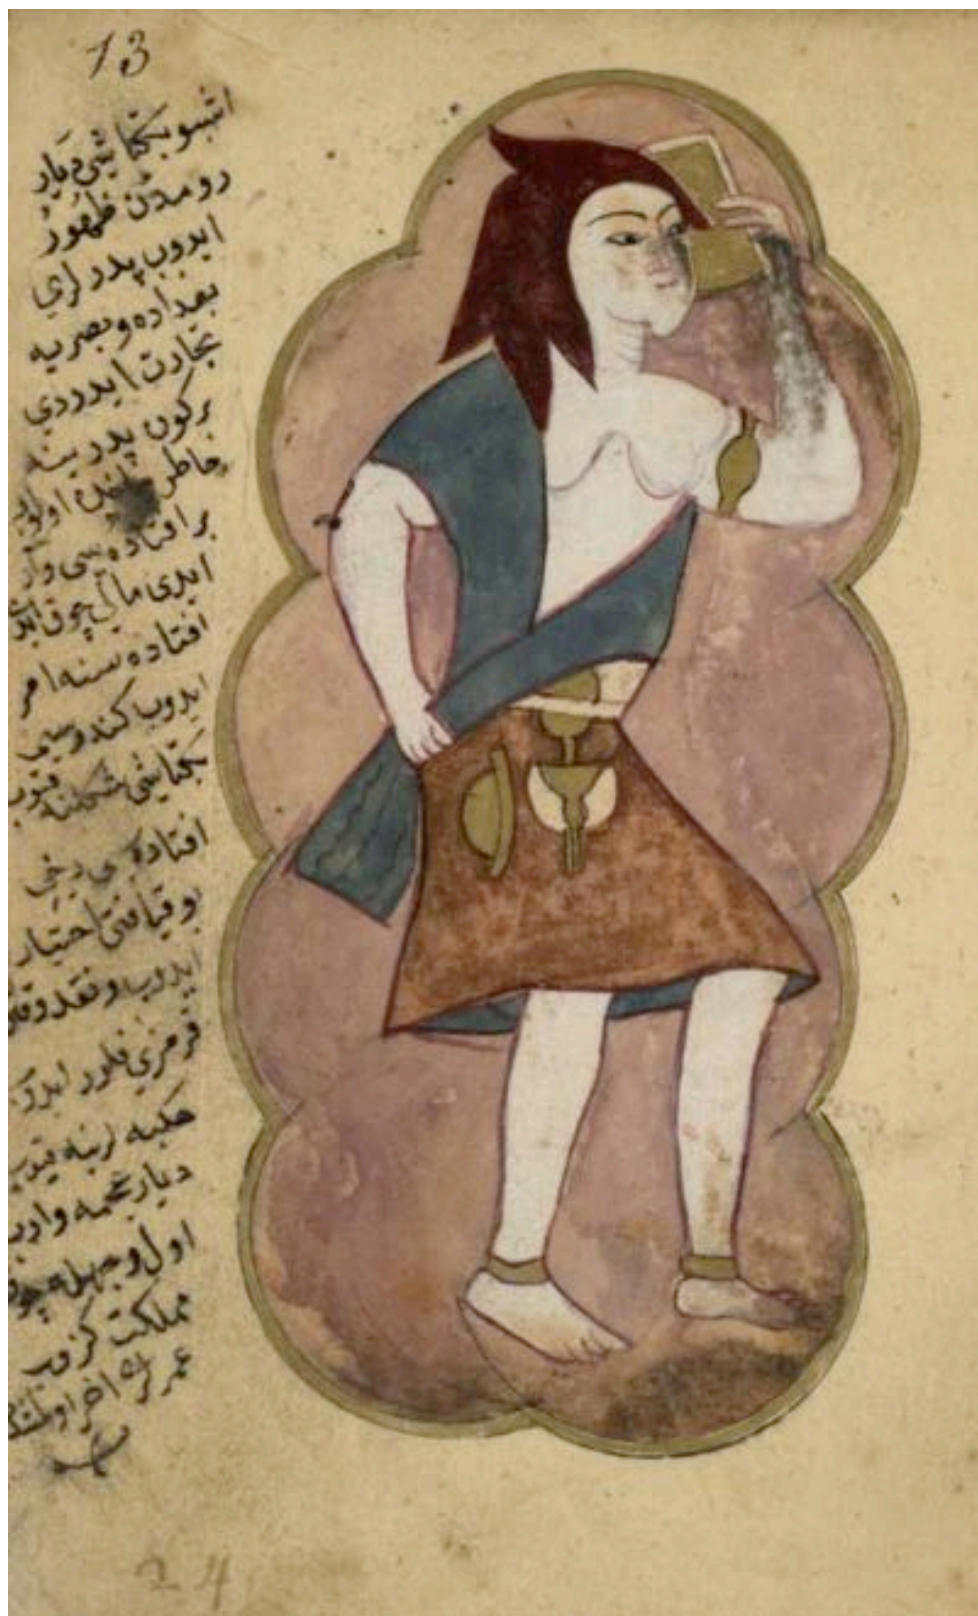 13
اشبو بكتاشی دیار
رومدن ظهور
ایدوب پدرلری
بغداده و بصریه
تجارت ایدردی
برکون پدرینه
خاطر اولوب
بر افتاده سی وار
ایدی مالی چوق
افتاده سنه امر
ایدوب کندوسی
بكتاشی شكلنه
افتاده سی دخی
بو قیافتی اختیار
ایدوب و نقد و
قرمزی فلوری
هكبه لرینه
دیار عجمه واروب
اول و جهله
مملكت كزوب
عمرلری اخر
24